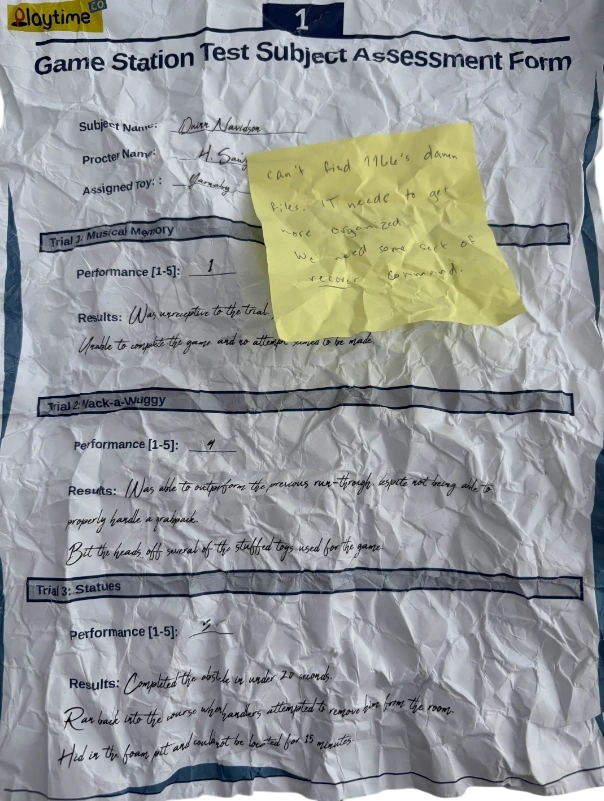 Playtime CO
1
Game Station Test Subject Assessment Form
Subject Name: Quinn Navidson
Procter Name: H.
Assigned Toy: : Yarnaby
can't find 1166's damn
files. IT needs to get
more organized.
We need some sort of
recover command.
Trial 1: Musical Memory
Performance [1-5]: 1
Results: Was unreceptive to the trial.
Unable to complete the game and no attempt to be made.
Trial 2: Wack-a-Wuggy
Performance [1-5]: 4
Results: Was able to outperform the previous run-through, despite not being able to
properly handle a grabpack.
Bit the heads off several of the stuffed toys used for the game.
Trial 3: Statues
Performance [1-5]:
Results: Completed the obstcle in under 20 seconds.
Ran back into the course when handlers attempted to remove him from the room.
Hid in the foam pit and could not be located for 15 minutes